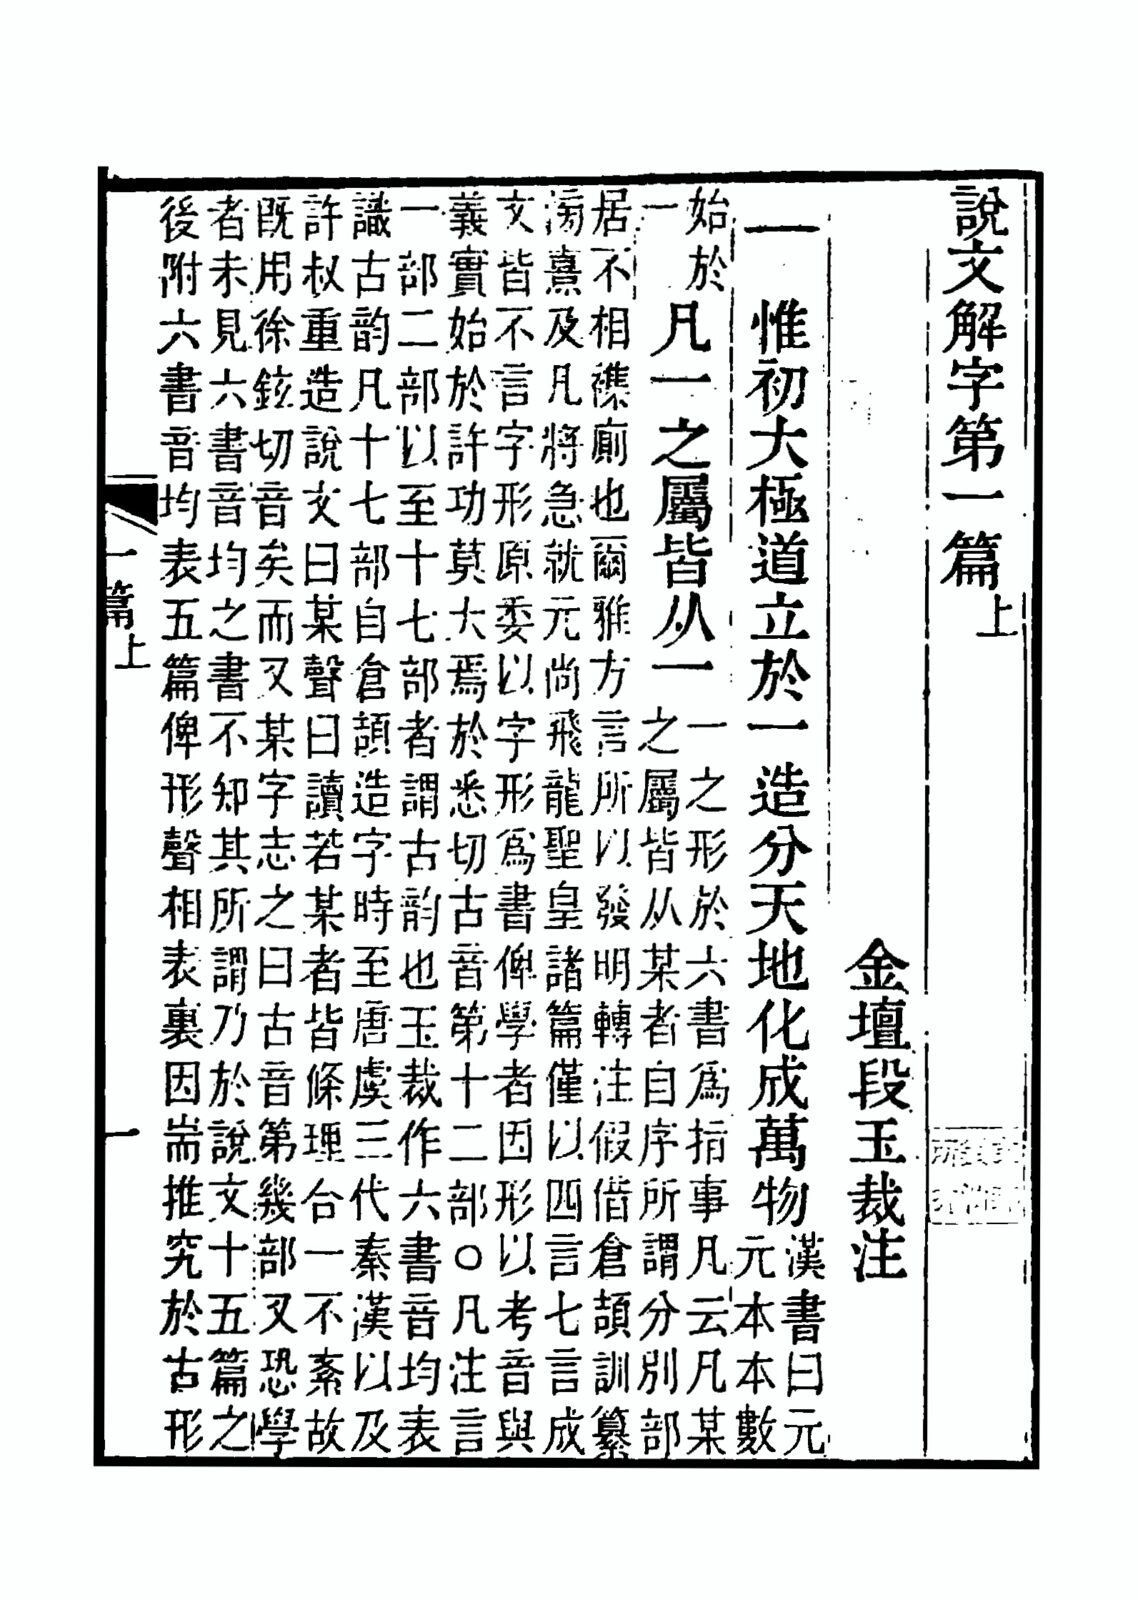 說文解字第一篇上
金壇段玉裁注
一惟初大極道立於一造分天地化成萬物
漢書曰元
元本本數
始於
一
凡一之屬皆从一
一之形於六書爲指事凡云凡某
之屬皆从某者自序所謂分別部
居不相襍廁也爾雅方言所以發明轉注假借倉頡訓纂
滂熹及凡將急就元尚飛龍聖皇諸篇僅以四言七言成
文皆不言字形原委以字形爲書俾學者因形以考音與
義實始於許功莫大焉於悉切古音第十二部○凡注言
一部二部以至十七部者謂古韵也玉裁作六書音均表
識古韵凡十七部自倉頡造字時至唐虞三代秦漢以及
許叔重造說文曰某聲曰讀若某者皆條理合一不紊故
既用徐鉉切音矣而又某字志之曰古音第幾部又恐學
者未見六書音均之書不知其所謂乃於說文十五篇之
後附六書音均表五篇俾形聲相表裏因耑推究於古形
一篇上
一